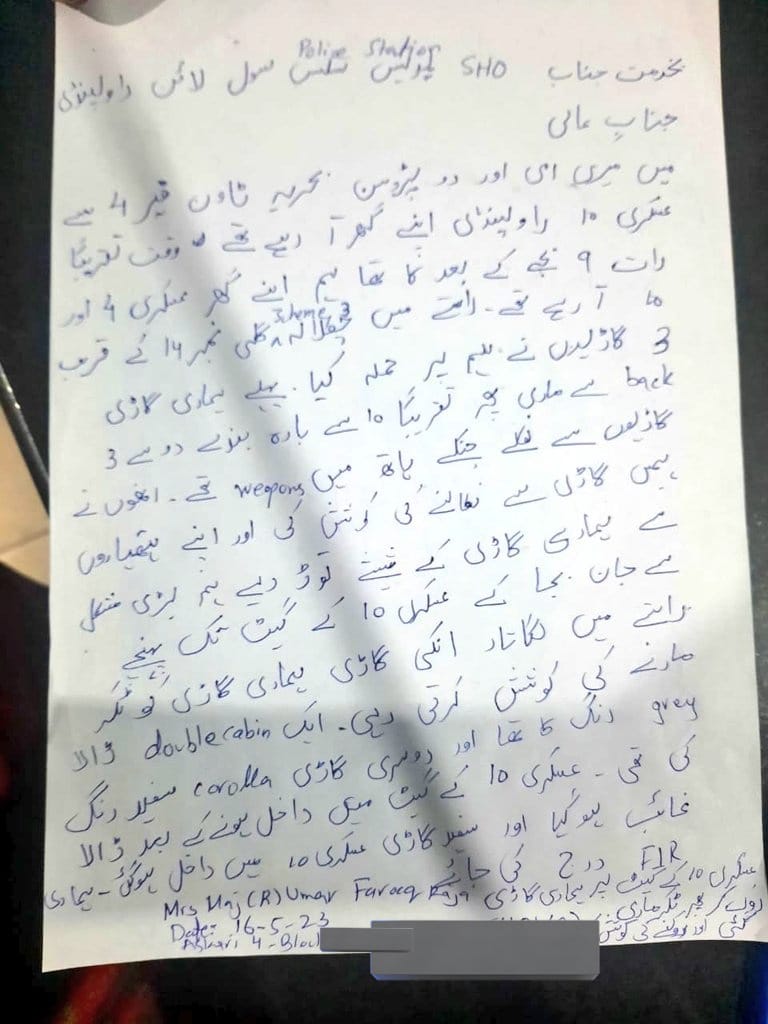 Police Station
بخدمت جناب SHO پولیس سٹیشن سول لائن راولپنڈی
جنابِ عالی
میں میری امی اور دو پڑوسن بحریہ ٹاون فیز 4 سے
عسکری 10 راولپنڈی اپنے گھر آ رہے تھے وقت تقریباً
رات 9 بجے کے بعد کا تھا ہم اپنے گھر عسکری 4 اور
10 آ رہے تھے۔ راستے میں چکلالہ scheme 3 گلی نمبر 14 کے قریب
3 گاڑیوں نے ہم پر حملہ کیا۔ پہلے ہماری گاڑی
back سے ماری پھر تقریباً 10 سے بارہ بندے دو سے 3
گاڑیوں سے نکلے جنکے ہاتھ میں weapons تھے۔ انھوں نے
ہمیں گاڑی سے نکالنے کی کوشش کی اور اپنے ہتھیاروں
سے ہماری گاڑی کے شیشے توڑ دیے ہم بڑی مشکل
سے جان بچا کے عسکری 10 کے گیٹ تک پہنچے
راستے میں لگاتار انکی گاڑی ہماری گاڑی کو ٹکر
مارنے کی کوشش کرتی رہی۔ ایک double cabin ڈالا
grey رنگ کا تھا اور دوسری گاڑی corolla سفید رنگ
کی تھی۔ عسکری 10 کے گیٹ میں داخل ہونے کے بعد ڈالا
غائب ہوگیا اور سفید گاڑی عسکری 10 میں داخل ہوگئی۔ ہماری
FIR درج کی جائے
عسکری 10 کے گیٹ پر ہماری گاڑی
Mrs Maj (R) Umar Farooq
پھر ٹکر ماری
Date: 16-5-23
اور روکنے کی کوشش
Askari 4-Bloc